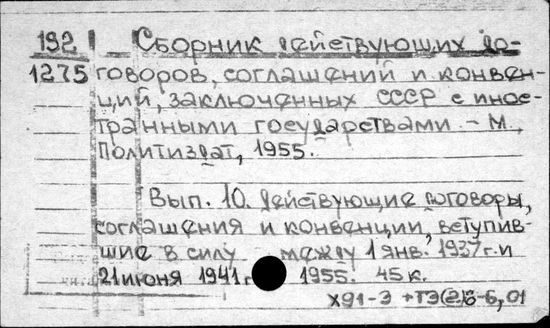 192 Сборник действующих до-
1275 говоров, соглашений и конвен-
ций, заключенных СССР с инос-
транными государствами. - М.,
Политиздат, 1955.
Вып. 10. Действующие договоры,
соглашения и конвенции, вступив-
шие в силу между 1 янв. 1937 г. и
21 июня 1941 г. 1955. 45 к.
X91-Э +ТЭ(2)6-6,01